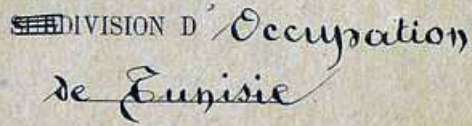 DIVISION D'Occupation
de Tunisie